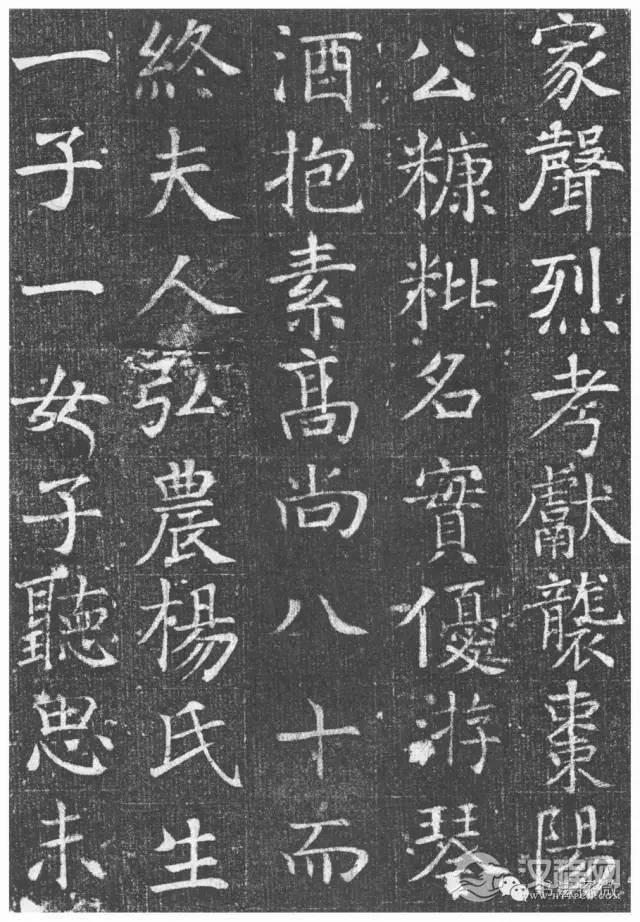 家聲烈考獻襲棗陽
公糠粃名實優游琴
酒抱素高尚八十而
終夫人弘農楊氏生
一子一女子聽思未
汉程网